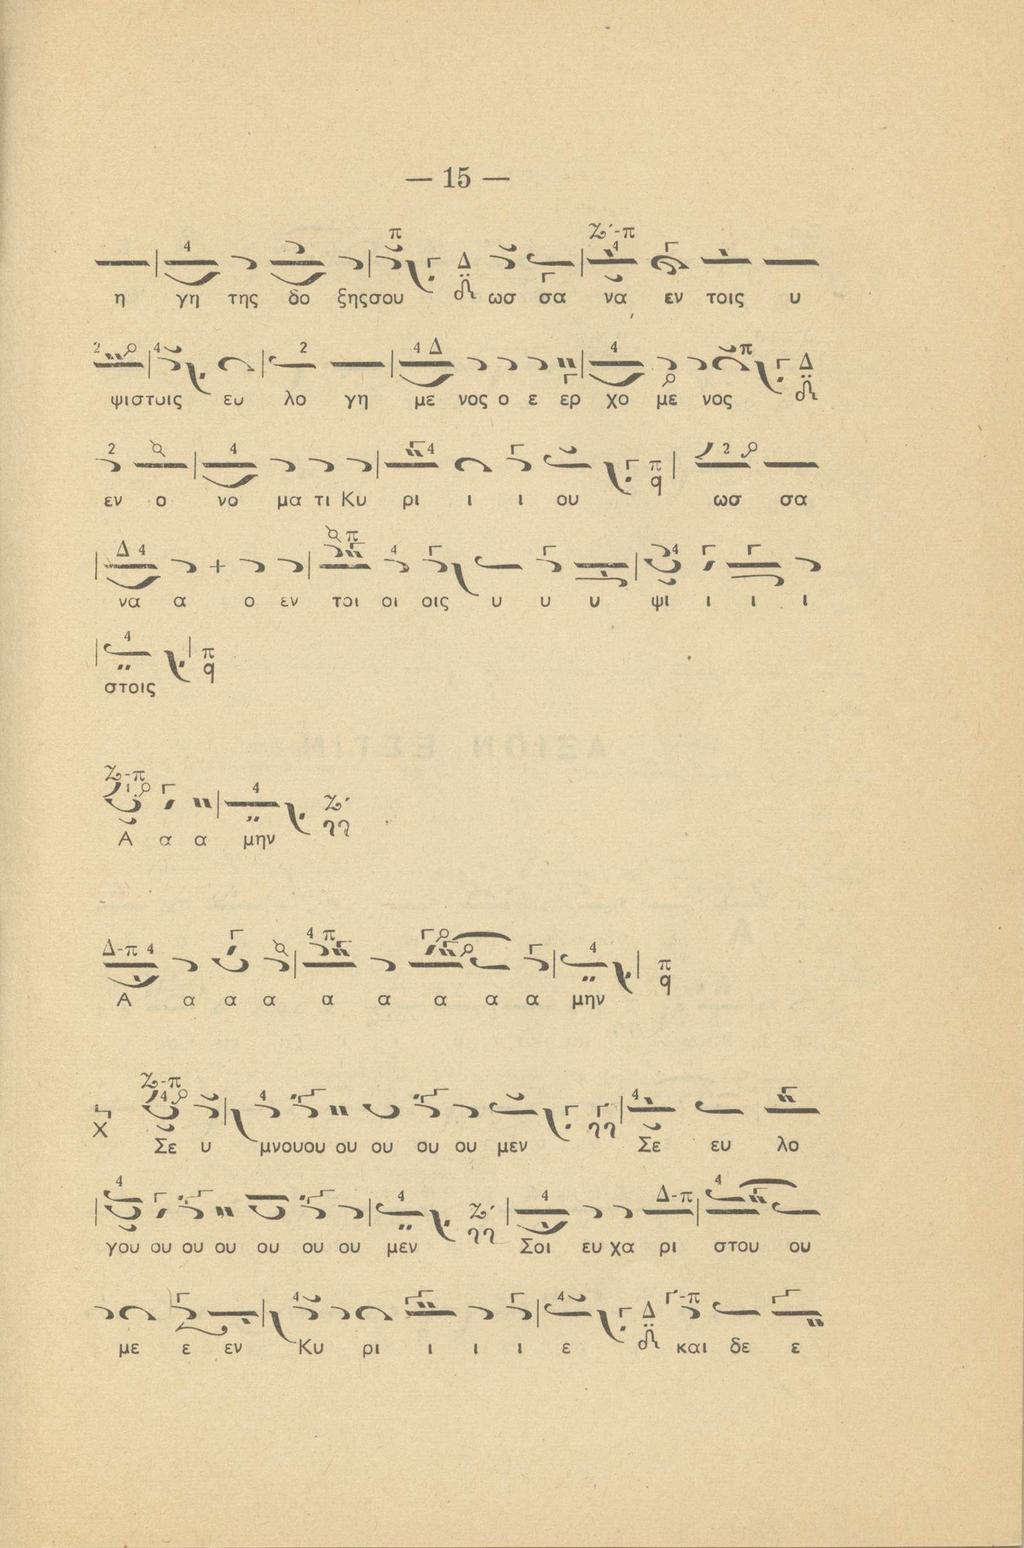 — 15 —
η γη της δο ξηςσου ωσ σα να εν τοις υ
ψιστοις ευ λο γη με νος ο ε ερ χο με νος
εν ο νο μα τι Κυ ρι ι ι ου ωσ σα
να α ο εν τοι οι οις υ υ υ ψι ι ι ι
στοις
Α α α μην
Α α α α α α α α α μην
Σε υ μνουου ου ου ου ου μεν Σε ευ λο
γου ου ου ου ου ου ου μεν Σοι ευ χα ρι στου ου
με ε εν Κυ ρι ι ι ι ε και δε ε